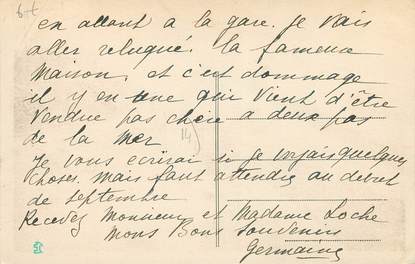 en allant a la gare. je vais
aller reluqué. la fameuse
maison, et c'est dommage
il y en une qui vient d'être
vendue pas chère a deux pas
de la mer
je vous écrirai si je voyais quelques
choses. mais faut attendre au debut
de septembre
Recevez Monsieur et Madame Loche
mons Bons Souvenirs
Germaine